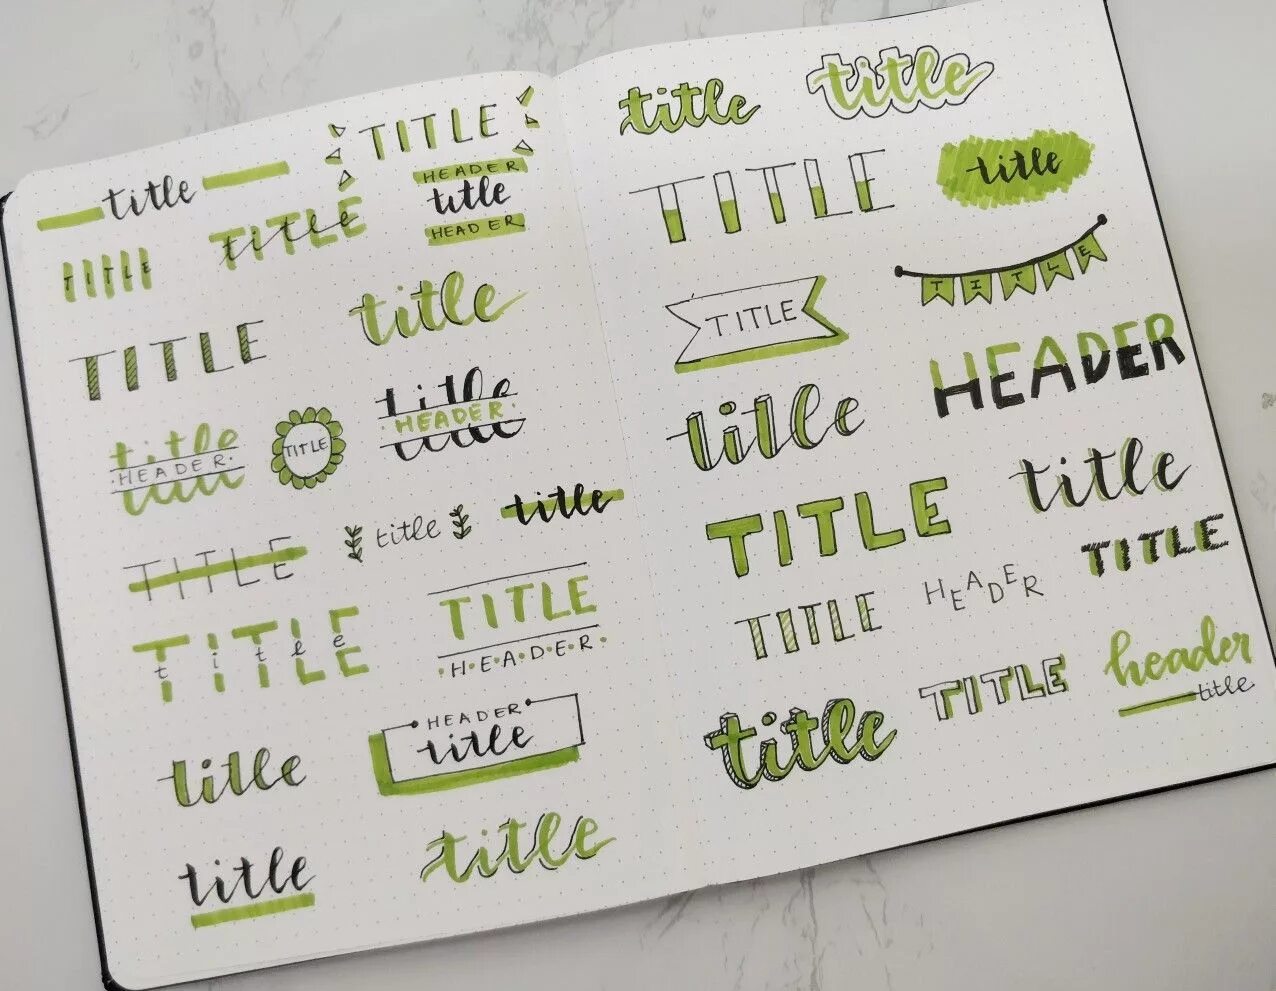 title
TITLE
HEADER
title
HEADER
TITLE
title
TITLE
title
TITLE
title
HEADER
TITLE
title
HEADER
title
title
TITLE
TITLE
title
TITLE
HEADER
title
HEADER
title
title
title
title
title
TITLE
title
TITLE
TITLE
HEADER
title
title
TITLE
TITLE
TITLE
HEADER
header
title
TITLE
title